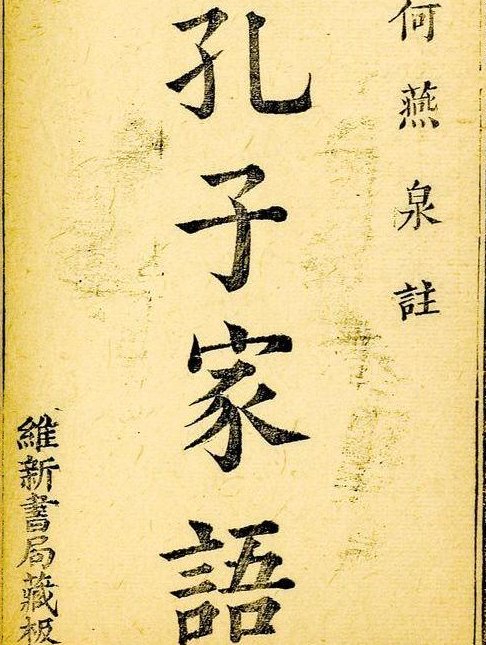 何燕泉註
孔子家語
維新書局藏板